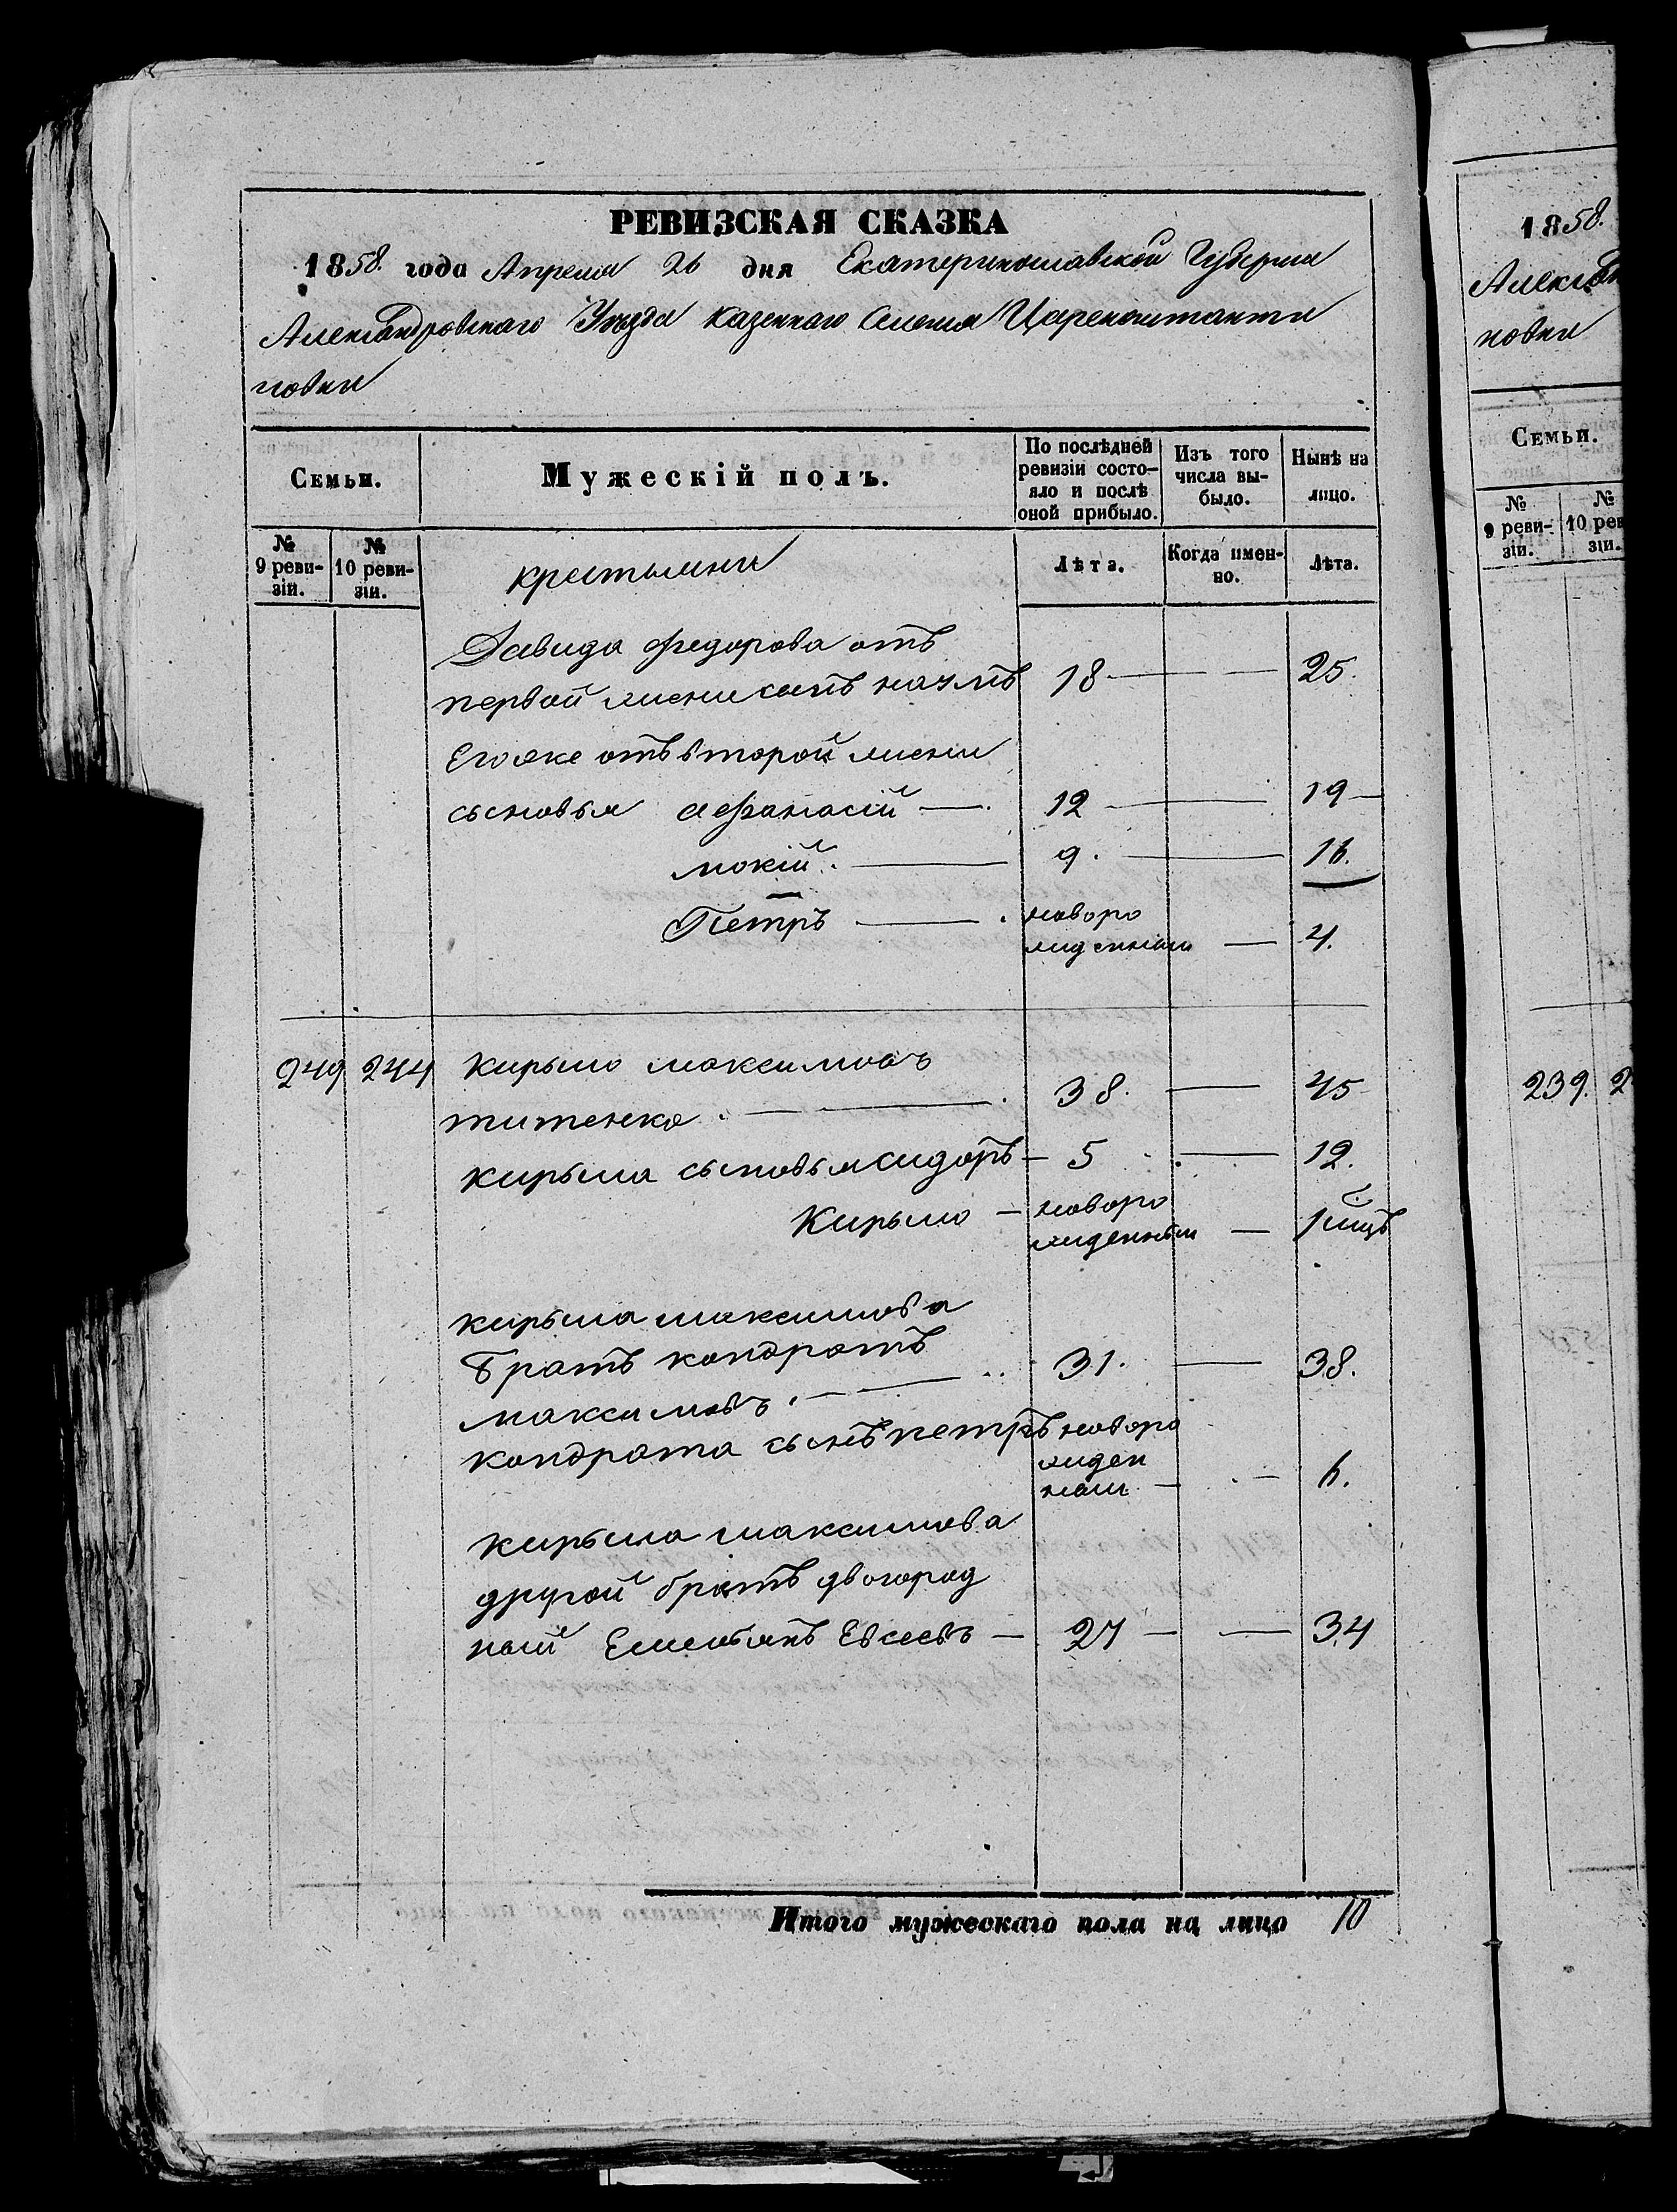 РЕВИЗСКАЯ СКАЗКА
1858. года Апреля 26 дня Екатеринославской Губернии
Александровскаго Уезда казеннаго Селения Цареконстанти
новки
Семьи.
Мужескій полъ.
По послѣдней ревизіи состо-
яло и послѣ
оной прибыло.
Изъ того
числа вы-
было.
Нынѣ на
лицо.
№ 9 реви-
зіи.
№ 10 реви-
зіи.
крестьяни
Лѣта.
Когда имен-
но.
Лѣта.
Давида федорова отъ
первой жени сынъ 18 — — 25.
Егоже отъ второй жени
сыновья афанасій — 12 — 19 —
мокій. — 9. — 16.
Петръ — новоро
жденный — 4.
249 244 кирыло максимовъ
титенко — 38. — 45
кирыла сыновья сидоръ — 5 — 12.
Кирыло — новоро
жденный — 1
кирыла максимова
братъ кондратъ
максимовъ. — 31. — 38.
кондрата сынъ петръ новоро
жден
ный — — 6.
кирыла максимова
другой братъ двоюрод
ный Емельянъ Евсеевъ — 27 — — 34
Итого мужескаго пола на лицо 10
1858.
новки
Семьи.
№
9 реви-
зіи.
№
10 рев
зіи.
239. 2